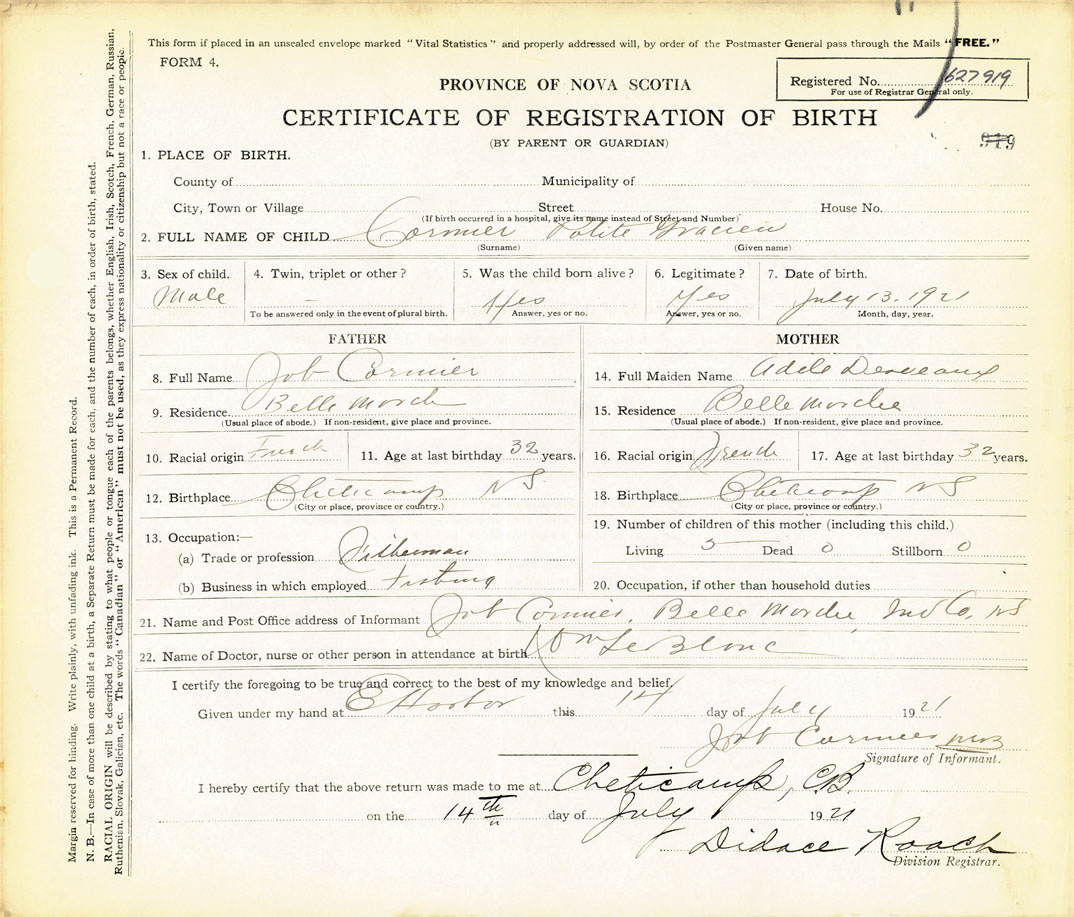 This form if placed in an unsealed envelope marked "Vital Statistics" and properly addressed will, by order of the Postmaster General pass through the Mails "FREE."
FORM 4.
Registered No. 627919
For use of Registrar General only.
PROVINCE OF NOVA SCOTIA
CERTIFICATE OF REGISTRATION OF BIRTH
(BY PARENT OR GUARDIAN)
1. PLACE OF BIRTH.
County of Municipality of
City, Town or Village Street House No.
(If birth occurred in a hospital, give its name instead of Street and Number)
2. FULL NAME OF CHILD Cormier
(Surname) (Given name)
3. Sex of child. 4. Twin, triplet or other? 5. Was the child born alive? 6. Legitimate? 7. Date of birth.
Male – Yes Yes July 13. 1921
To be answered only in the event of plural birth. Answer, yes or no. Answer, yes or no. Month, day, year.
FATHER MOTHER
8. Full Name Job Cormier 14. Full Maiden Name Adele Deveaux
9. Residence Belle Marche 15. Residence Belle Marche
(Usual place of abode.) If non-resident, give place and province. (Usual place of abode.) If non-resident, give place and province.
10. Racial origin French 11. Age at last birthday 32 years. 16. Racial origin French 17. Age at last birthday 32 years.
12. Birthplace Cheticamp NS 18. Birthplace Cheticamp NS
(City or place, province or country.) (City or place, province or country.)
13. Occupation:— 19. Number of children of this mother (including this child.)
(a) Trade or profession Fisherman Living 5 Dead 0 Stillborn 0
(b) Business in which employed Fishing 20. Occupation, if other than household duties
21. Name and Post Office address of Informant Job Cormier, Belle Marche, Inv Co. NS
22. Name of Doctor, nurse or other person in attendance at birth LeBlanc
I certify the foregoing to be true and correct to the best of my knowledge and belief.
Given under my hand at E Harbor this 14 day of July 1921
Job Cormier
Signature of Informant.
I hereby certify that the above return was made to me at Cheticamp, C.B.
on the 14th day of July 1921
Didace Roach
Division Registrar.
Margin reserved for binding. Write plainly, with unfading ink. This is a Permanent Record.
N. B.—In case of more than one child at a birth, a Separate Return must be made for each, and the number of each, in order of birth, stated.
RACIAL ORIGIN will be described by stating to what people or tongue each of the parents belongs, whether English, Irish, Scotch, French, German, Russian,
Ruthenian, Slovak, Galician, etc. The words "Canadian" or "American" must not be used, as they express nationality or citizenship but not a race or people.